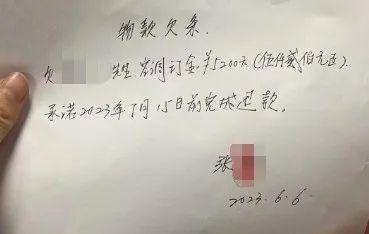 物款欠条.
欠 先生 岩洞订金¥5200元(伍仟贰佰元正).
承诺2023年7月15日前完成还款。
张
2023.6.6.